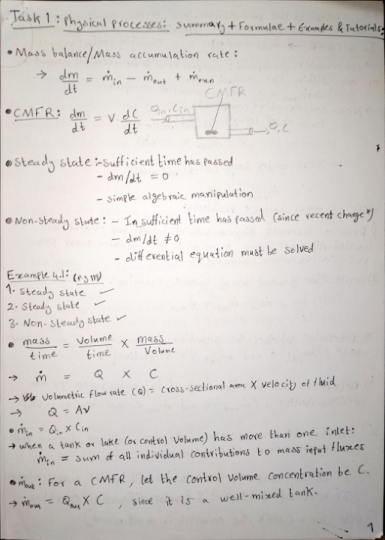 Task 1: Physical processes: summary + Formulae + Examples & Tutorials
• Mass balance/Mass accumulation rate:
→ dm/dt = ṁin − ṁout + ṁrxn
CMFR
• CMFR: dm/dt = V · dC/dt
Qin, Cin
Q, C
• Steady state :- sufficient time has passed
- dm/dt = 0
- simple algebraic manipulation
• Non-steady state: - Insufficient time has passed (since recent change*)
- dm/dt ≠ 0
- differential equation must be solved
Example 4.1:
1. Steady state
2. Steady state
3. Non-steady state
• mass/time = Volume/time × mass/Volume
→ ṁ = Q × C
→ Volumetric flow rate (Q) = cross-sectional area × velocity of fluid
→ Q = Av
• ṁin = Qin × Cin
→ when a tank or lake (or control volume) has more than one inlet:
ṁin = sum of all individual contributions to mass input fluxes
• ṁout: For a CMFR, let the control volume concentration be C.
→ ṁout = Qout × C, since it is a well-mixed tank.
1